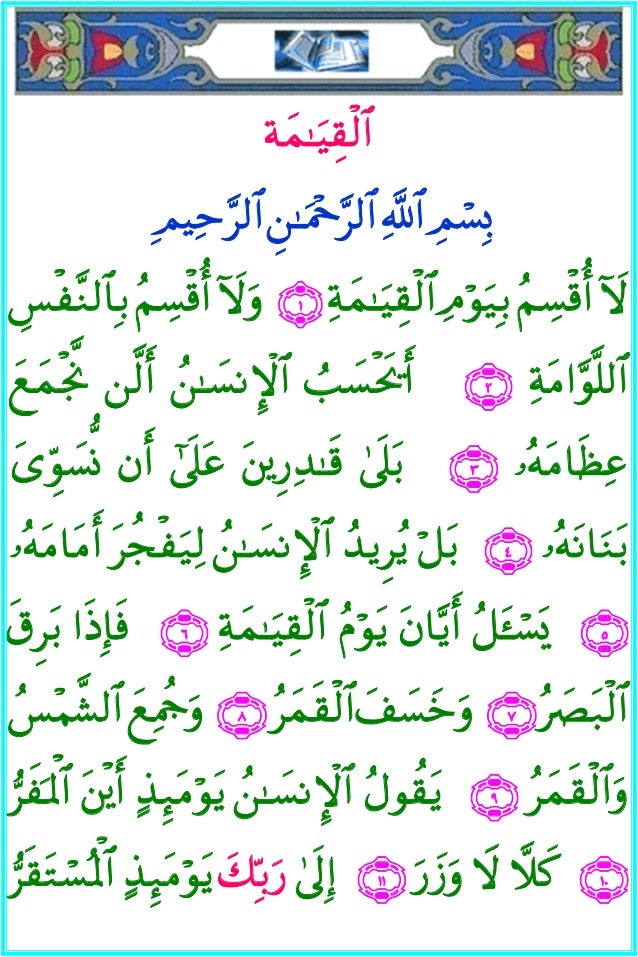 ٱلْقِيَـٰمَة
بِسْمِ ٱللَّهِ ٱلرَّحْمَـٰنِ ٱلرَّحِيمِ
لَآ أُقْسِمُ بِيَوْمِ ٱلْقِيَـٰمَةِ ١ وَلَآ أُقْسِمُ بِٱلنَّفْسِ
ٱللَّوَّامَةِ ٢ أَيَحْسَبُ ٱلْإِنسَـٰنُ أَلَّن نَّجْمَعَ
عِظَامَهُۥ ٣ بَلَىٰ قَـٰدِرِينَ عَلَىٰٓ أَن نُّسَوِّىَ
بَنَانَهُۥ ٤ بَلْ يُرِيدُ ٱلْإِنسَـٰنُ لِيَفْجُرَ أَمَامَهُۥ
٥ يَسْـَٔلُ أَيَّانَ يَوْمُ ٱلْقِيَـٰمَةِ ٦ فَإِذَا بَرِقَ
ٱلْبَصَرُ ٧ وَخَسَفَ ٱلْقَمَرُ ٨ وَجُمِعَ ٱلشَّمْسُ
وَٱلْقَمَرُ ٩ يَقُولُ ٱلْإِنسَـٰنُ يَوْمَئِذٍ أَيْنَ ٱلْمَفَرُّ
١٠ كَلَّا لَا وَزَرَ ١١ إِلَىٰ رَبِّكَ يَوْمَئِذٍ ٱلْمُسْتَقَرُّ